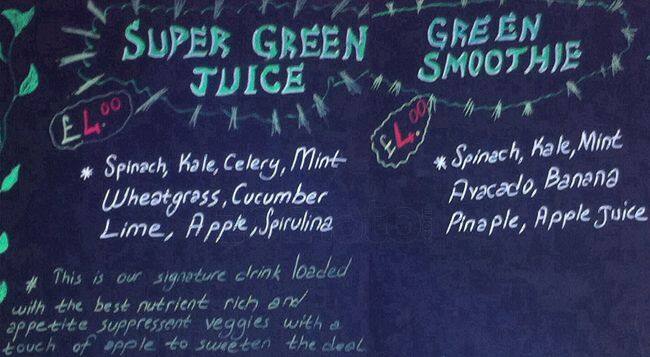 SUPER GREEN
JUICE
£4.00
* Spinach, Kale, Celery, Mint
Wheatgrass, Cucumber
Lime, Apple, Spirulina
* This is our signature drink loaded
with the best nutrient rich and
appetite suppressent veggies with a
touch of apple to sweeten the deal
GREEN
SMOOTHIE
£4.00
* Spinach, Kale, Mint
Avacado, Banana
Pinaple, Apple Juice